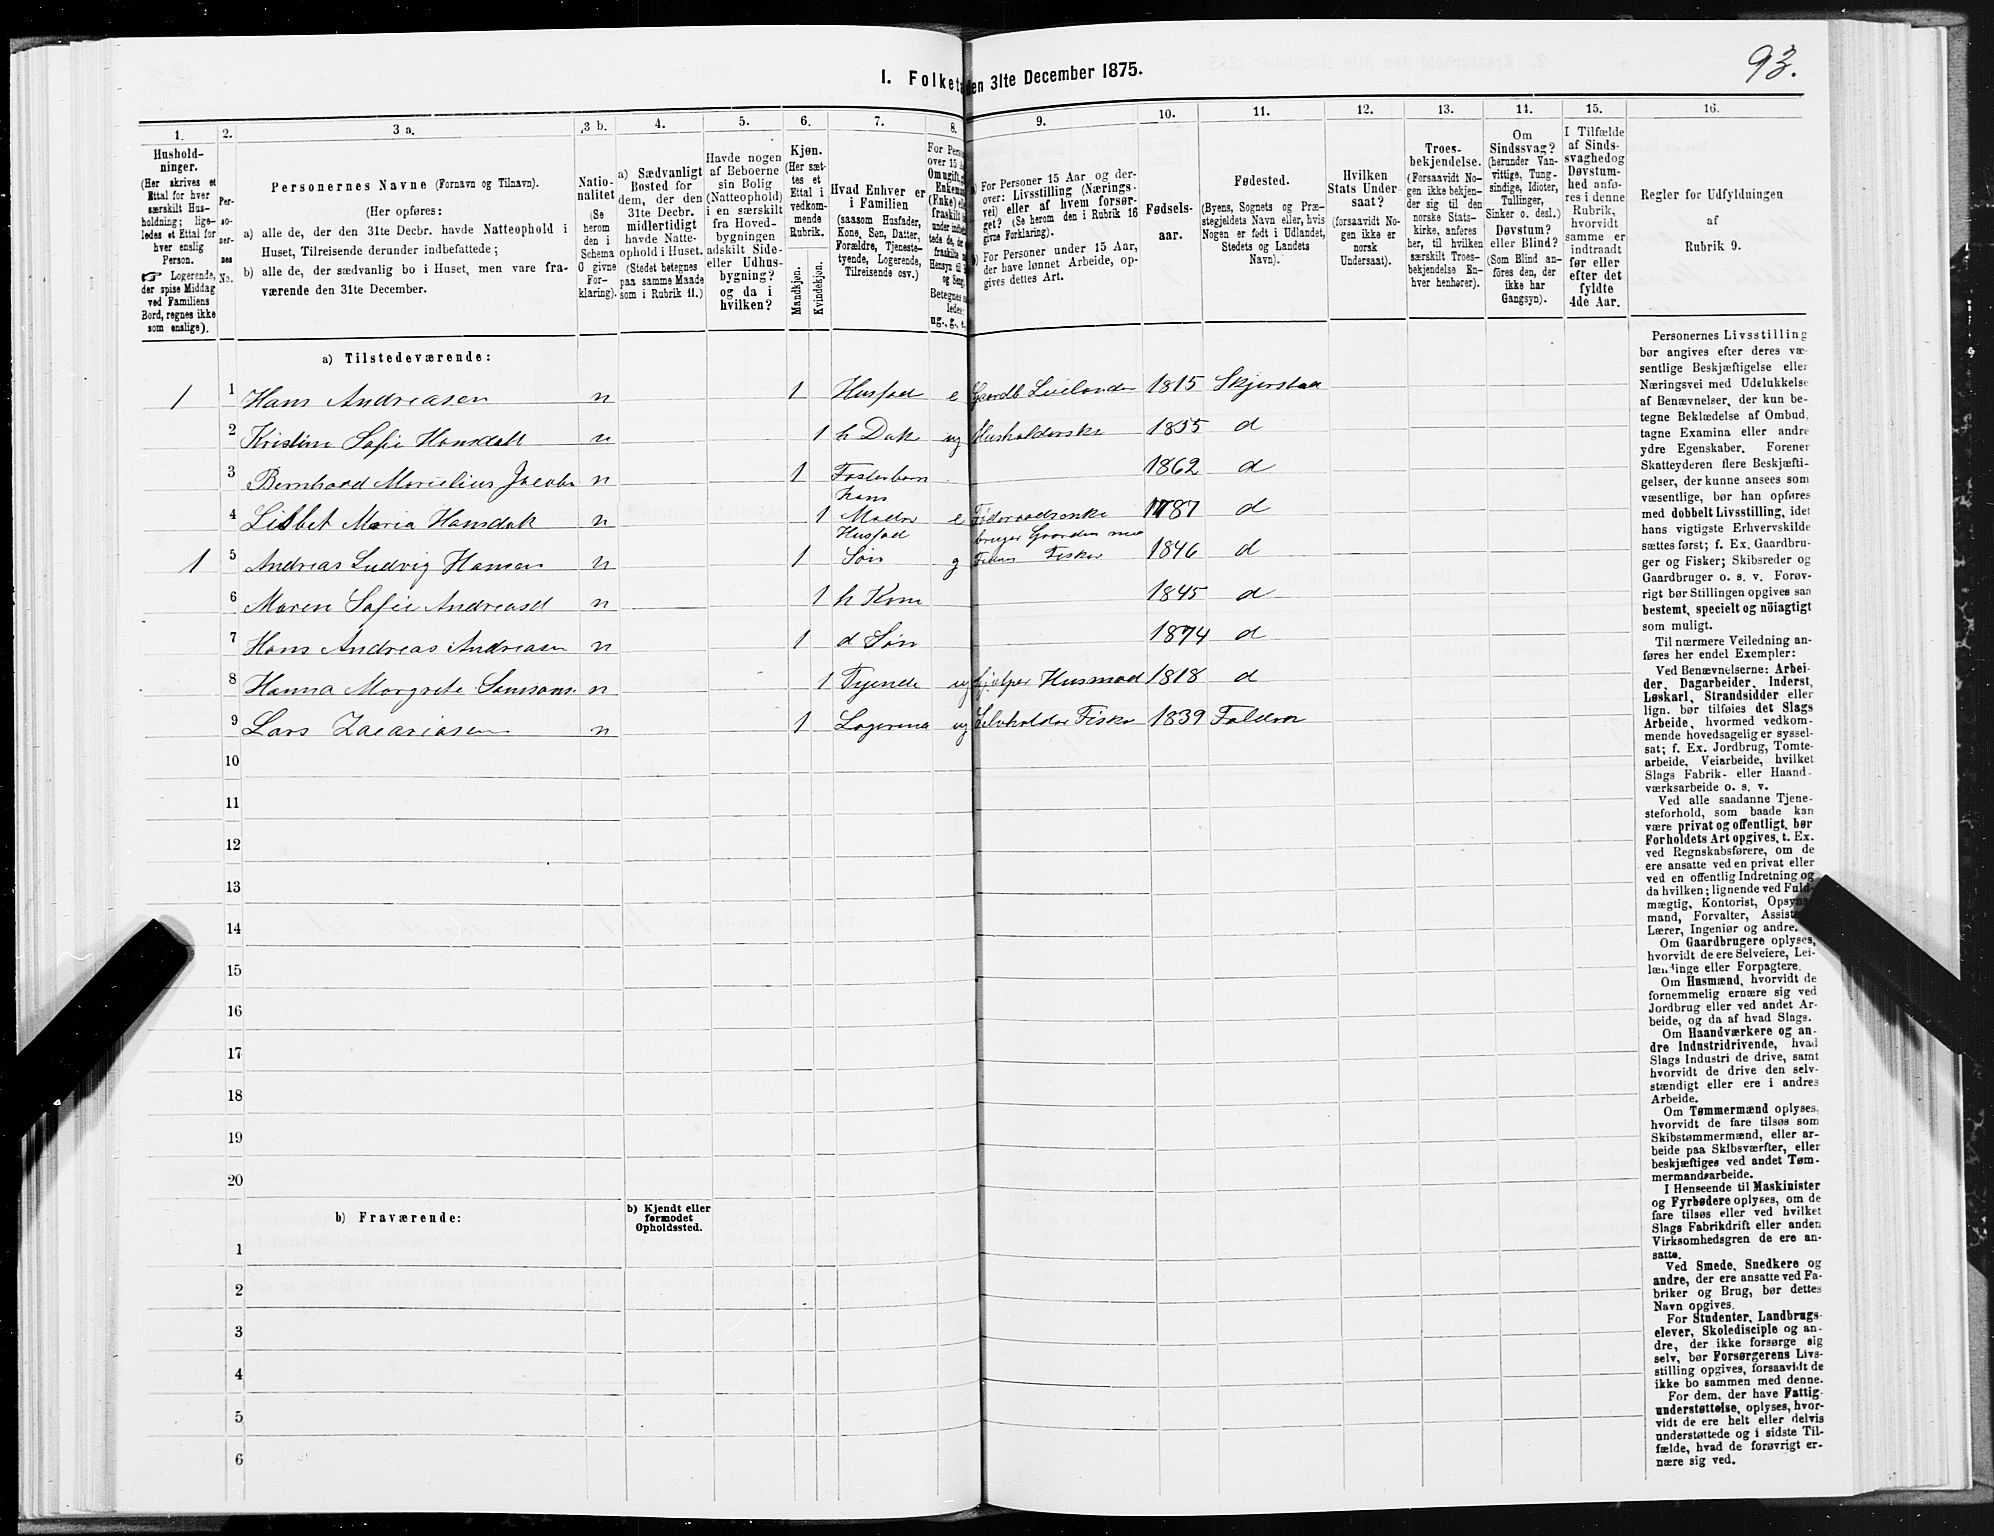 93.
I. Folket en 31te December 1875.
1. 2. 3 a. 3 b. 4. 5. 6. 7. 8. 9. 10. 11. 12. 13. 14. 15. 16.
Hushold-
ninger.
(Her skrives et
Ettal for hver
særskilt Hus-
holdning; lige-
ledes et Ettal for
hver enslig
Person.
☞ Logerende,
der spise Middag
ved Familiens
Bord, regnes ikke
som enslige).
Per-
so-
ner-
nes
No.
Personernes Navne (Fornavn og Tilnavn).
(Her opføres:
a) alle de, der den 31te Decbr. havde Natteophold i
Huset, Tilreisende derunder indbefattede;
b) alle de, der sædvanlig bo i Huset, men vare fra-
værende den 31te December.
Natio-
nalitet
(Se
herom
den i
Schema
O givne
For-
klaring).
a) Sædvanligt
Bosted for
dem, der den
31te Decbr.
midlertidigt
havde Natte-
ophold i Huset.
(Stedet betegnes
paa samme Maade
som i Rubrik 11.)
Havde nogen
af Beboerne
sin Bolig
(Natteophold)
i en særskilt
fra Hoved-
bygningen
adskilt Side-
eller Udhus-
bygning?
og da i
hvilken?
Kjøn.
(Her sæt-
tes et
Ettal i
vedkom-
mende
Rubrik.
Mandkjøn.
Kvindekjøn.
Hvad Enhver er
i Familien
(saasom Husfader,
Kone, Søn, Datter,
Forældre, Tjeneste-
tyende, Logerende,
Tilreisende osv.)
For Pers
over 15 A
Om ugift, g
Enkem
(Enke) el
fraskilt
ledes:
ug., g., e.
a) For Personer 15 Aar og der-
over: Livsstilling (Nærings-
vei) eller af hvem forsør-
get? (Se herom den i Rubrik 16
givne Forklaring).
b) For Personer under 15 Aar,
der have lønnet Arbeide, op-
gives dettes Art.
Fødsels-
aar.
Fødested.
(Byens, Sognets og Præ-
stegjeldets Navn eller, hvis
Nogen er født i Udlandet,
Stedets og Landets
Navn).
Hvilken
Stats Under-
saat?
(forsaavidt No-
gen ikke er
norsk
Undersaat).
Troes-
bekjendelse.
(Forsaavidt No-
gen ikke bekjen-
der sig til den
norske Stats-
kirke, anføres
her, til hvilken
særskilt Troes-
bekjendelse En-
hver henhører).
Om
Sindssvag?
(herunder Van-
vittige, Tung-
sindige, Idioter,
Tullinger,
Sinker o. desl.)
Døvstum?
eller Blind?
(Som Blind an-
føres den, der
ikke har
Gangsyn).
I Tilfælde
af Sinds-
svaghed og
Døvstum-
hed anfø-
res i denne
Rubrik,
hvorvidt
samme er
indtraadt
før eller
efter det
fyldte
4de Aar.
Regler for Udfyldningen
af
Rubrik 9.
a) Tilstedeværende:
1 1 Hans Andreasen n 1 Husfad e Gaardb Leilænder 1815 Skjerstad
2 Kristine Sofie Hansdatt n 1 h Datt ug Husholderske 1855 d
3 Bernhard Marielius Jacobs n 1 Fosterbarn 1862 d
4 Lisbet Maria Hansdatt n 1 hans Moder e Føderaadsenke 1787 d
1 5 Andreas Ludvig Hansen n 1 Husfad Søn g bruger Gaarden med Faderen Fisker 1846 d
6 Maren Sofie Andreasd n 1 h Kone 1845 d
7 Hans Andreas Andreasen n 1 d Søn 1874 d
8 Hanna Margrete Samsons. n 1 Tyende ug hjælper Husmod 1818 d
9 Lars Zacariasen n 1 Logerende ug Selvholder Fisker 1839
10
11
12
13
14
15
16
17
18
19
20
b) Fraværende:
b) Kjendt eller
formodet
Opholdssted.
1
2
3
4
5
6
Personernes Livsstilling
bør angives efter deres væ-
sentlige Beskjæftigelse eller
Næringsvei med Udelukkelse
af Benævnelser, der kun be-
tegne Beklædelse af Ombud,
tagne Examina eller andre
ydre Egenskaber. Forener
Skatteyderen flere Beskjæfti-
gelser, der kunne ansees som
væsentlige, bør han opføres
med dobbelt Livsstilling, idet
hans vigtigste Erhvervskilde
sættes først; f. Ex. Gaardbru-
ger og Fisker; Skibsreder og
Gaardbruger o. s. v. Forøv-
rigt bør Stillingen opgives saa
bestemt, specielt og nöiagtigt
som muligt.
Til nærmere Veiledning an-
føres her endel Exempler:
Ved Benævnelserne: Arbei-
der, Dagarbeider, Inderst,
Løskarl, Strandsidder eller
lign. bør tilføies det Slags
Arbeide, hvormed vedkom-
mende hovedsagelig er syssel-
sat; f. Ex. Jordbrug, Tomte-
arbeide, Veiarbeide, hvilket
Slags Fabrik- eller Haand-
værksarbeide o. s. v.
Ved alle saadanne Tjene-
steforhold, som baade kan
være privat og offentligt, bør
Forholdets Art opgives, t. Ex.
ved Regnskabsførere, om de
ere ansatte ved en privat eller
ved en offentlig Indretning og
da hvilken; lignende ved Fuld-
mægtig, Kontorist, Opsyns-
mand, Forvalter, Assistent,
Lærer, Ingeniør og andre.
Om Gaardbrugere oplyses,
hvorvidt de ere Selveiere, Lei-
lændinge eller Forpagtere.
Om Husmænd, hvorvidt de
fornemmelig ernære sig ved
Jordbrug eller ved andet Ar-
beide, og da af hvad Slags.
Om Haandværkere og an-
dre Industridrivende, hvad
Slags Industri de drive, samt
hvorvidt de drive den selv-
stændigt eller ere i andres
Arbeide.
Om Tømmermænd oplyses,
hvorvidt de fare tilsøs som
Skibstømmermænd, eller ar-
beide paa Skibsværfter, eller
beskjæftiges ved andet Tøm-
mermandsarbeide.
I Henseende til Maskinister
og Fyrbødere oplyses, om de
fare tilsøs eller ved hvilket
Slags Fabrikdrift eller anden
Virksomhedsgren de ere an-
satte.
Ved Smede, Snedkere og
andre, der ere ansatte ved Fa-
briker og Brug, bør dettes
Navn opgives.
For Studenter, Landbrugs-
elever, Skoledisciple og an-
dre, der ikke forsørge sig
selv, bør Forsørgerens Livs-
stilling opgives, forsaavidt de
ikke bo sammen med denne.
For dem, der have Fattig-
understøttelse, oplyses, hvor-
vidt de ere helt eller delvis
understøttede og i sidste Til-
fælde, hvad de forøvrigt er-
nære sig ved.